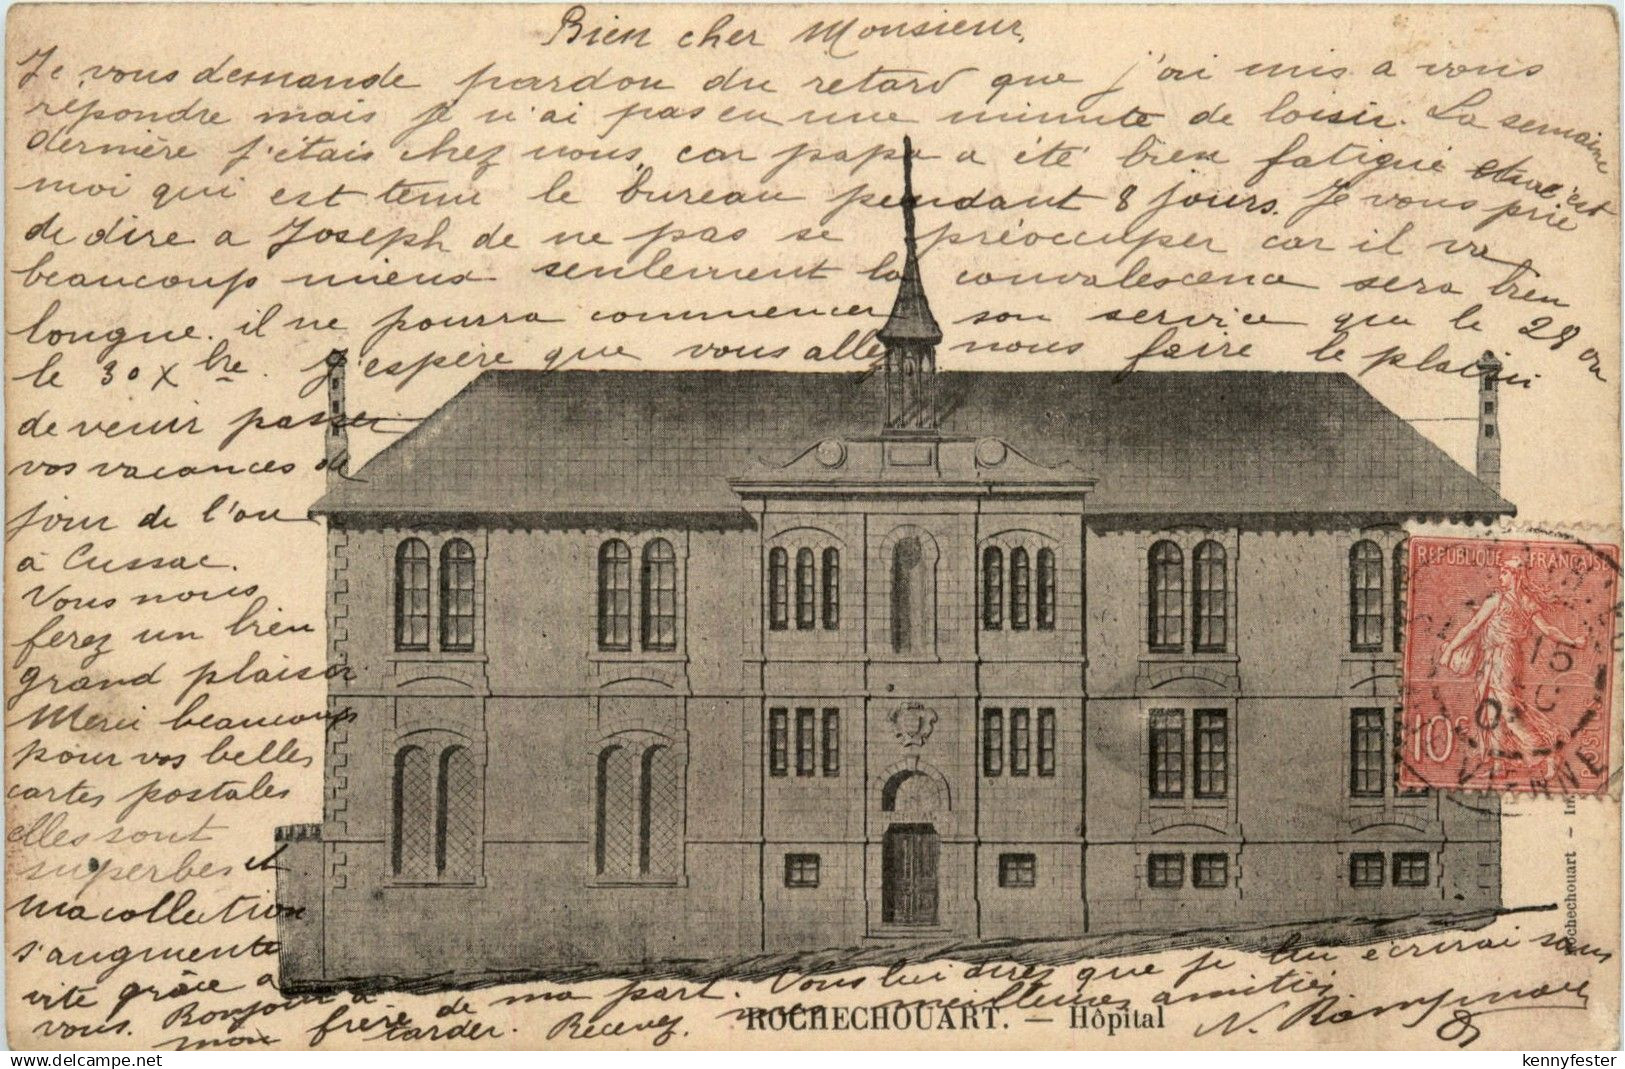 Bien cher Monsieur,
Je vous demande pardon du retard que j'ai mis a vous
répondre mais je n'ai pas eu une minute de loisir. La semaine
dernière j'étais chez nous, car papa a été bien fatigué et c'est
moi qui est tenu le bureau pendant 8 jours. Je vous prie
de dire a Joseph de ne pas se préoccuper car il va
beaucoup mieux seulement la convalescence sera bien
longue. il ne pourra commencer son service que le 28 ou
le 30 Xbre. J'espère que vous allez nous faire le plaisir
de venir passer
vos vacances de
jour de l'an
à Cussac.
Vous nous
ferez un bien
grand plaisir
Merci beaucoup
pour vos belles
cartes postales
elles sont
superbes et
ma collection
s'augmente
vite grâce a
vous. Bonjour a
mon frère de ma part. Vous lui direz que je lui écrirai sans
tarder. Recevez, mes meilleures amitiés
N.
ROCHECHOUART. — Hôpital
REPUBLIQUE FRANÇAISE
10c
POSTES
15
VIENNE
Rochechouart - Im
kennyfester